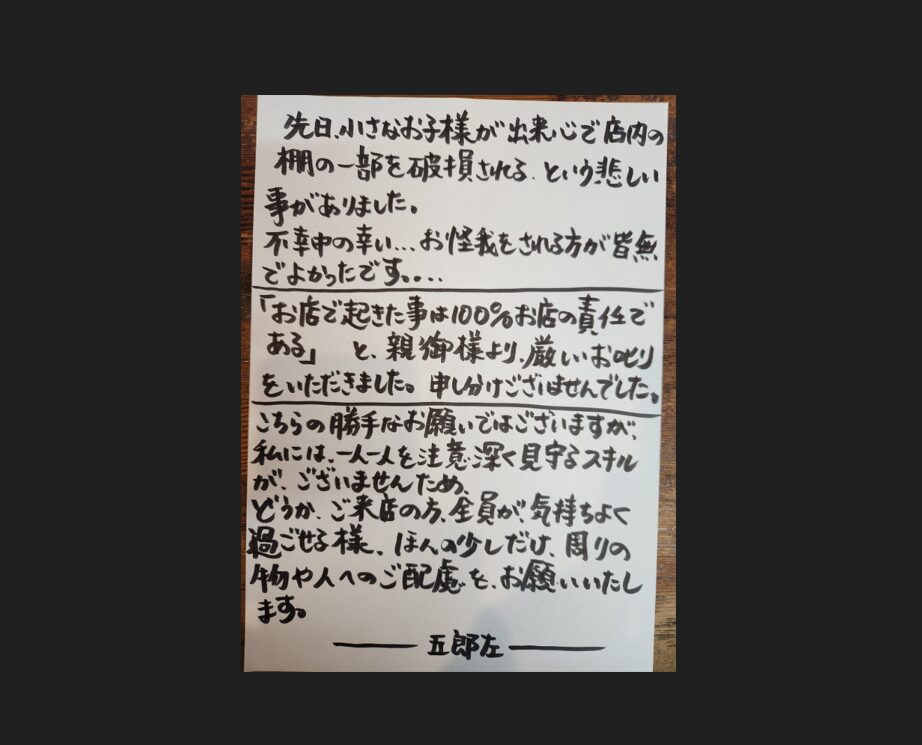 先日、小さなお子様が出来心で店内の
棚の一部を破損される、という悲しい
事がありました。
不幸中の幸い…お怪我をされる方が皆無
でよかったです。...
「お店で起きた事は100%お店の責任で
ある」 と、親御様より、厳しいお叱り
をいただきました。申し分けございませんでした。
こちらの勝手なお願いではございますが、
私には、一人一人を注意深く見守るスキル
が、ございませんため、
どうか、ご来店の方、全員が、気持ちよく
過ごせる様、ほんの少しだけ、周りの
物や人へのご配慮を、お願いいたし
ます。
五郎左